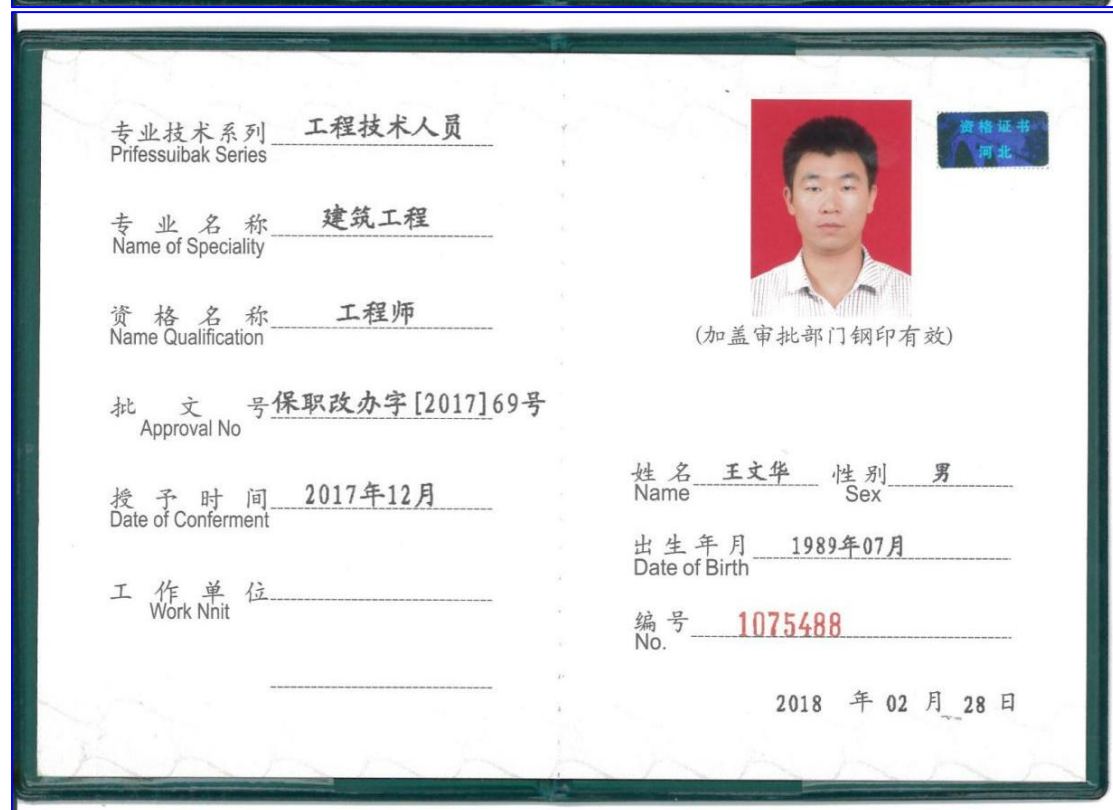 专业技术系列 工程技术人员
Prifessuibak Series
专业名称 建筑工程
Name of Speciality
资格名称 工程师
Name Qualification
批文号 保职改办字[2017]69号
Approval No
授予时间 2017年12月
Date of Conferment
工作单位
Work Nnit
资格证书
河北
(加盖审批部门钢印有效)
姓名 王文华 性别 男
Name Sex
出生年月 1989年07月
Date of Birth
编号 1075488
No.
2018 年 02 月 28 日